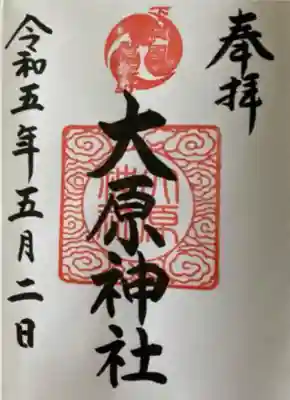 奉拝
大原神社
令和五年五月二日